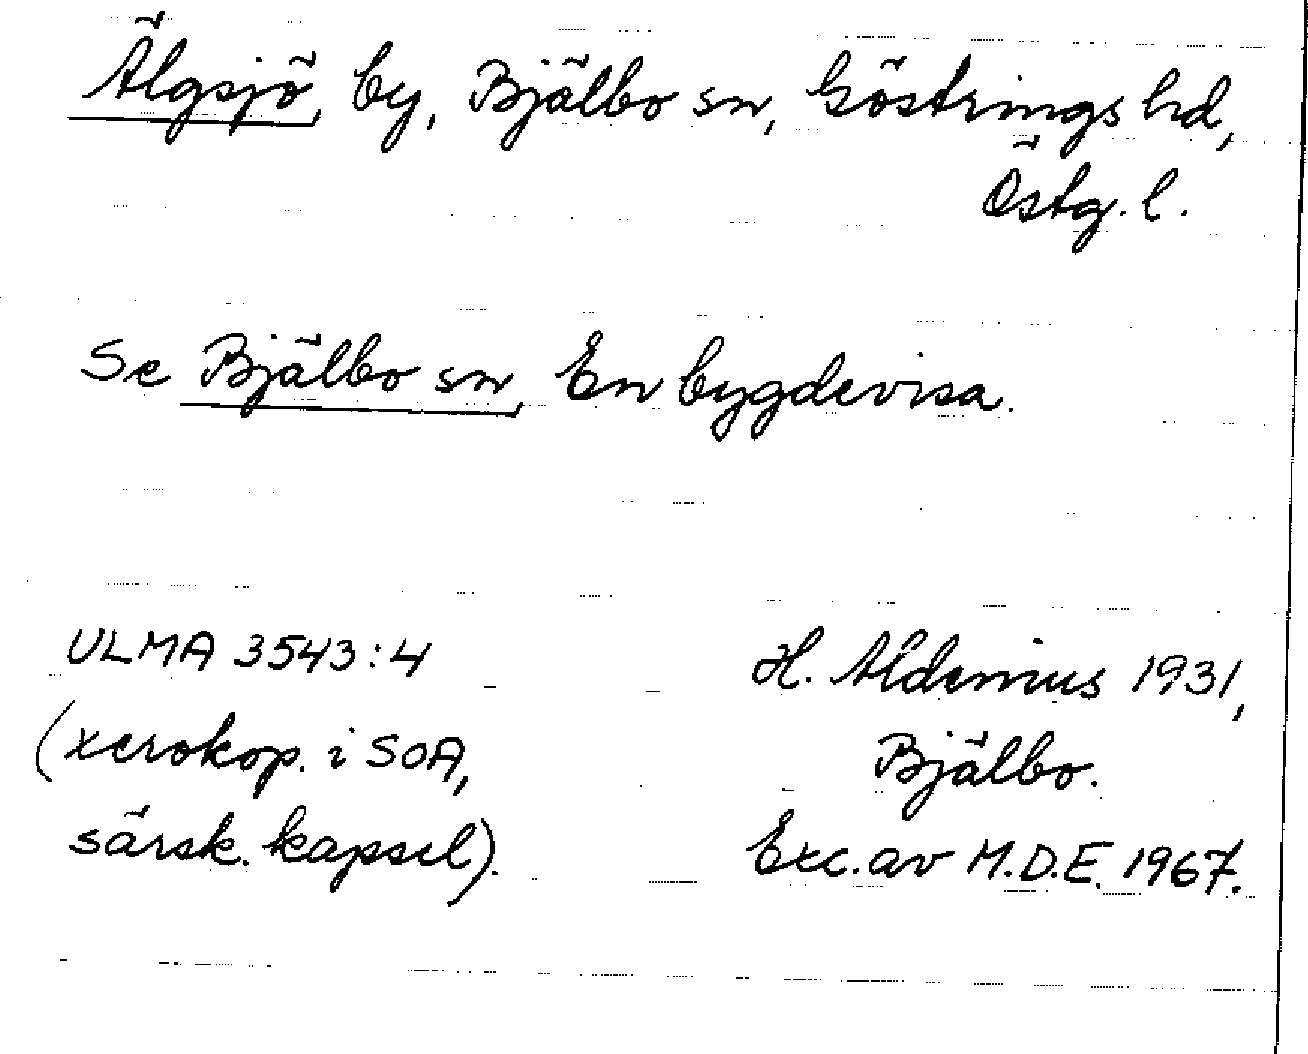 Älgsjö, by, Bjälbo sn, Göstrings hd,
Östg. l.
Se Bjälbo sn, En bygdevisa.
ULMA 3543:4
(xerokop. i SOA,
särsk. kapsel).
H. Aldenius 1931,
Bjälbo.
Exc. av M.D.E. 1967.